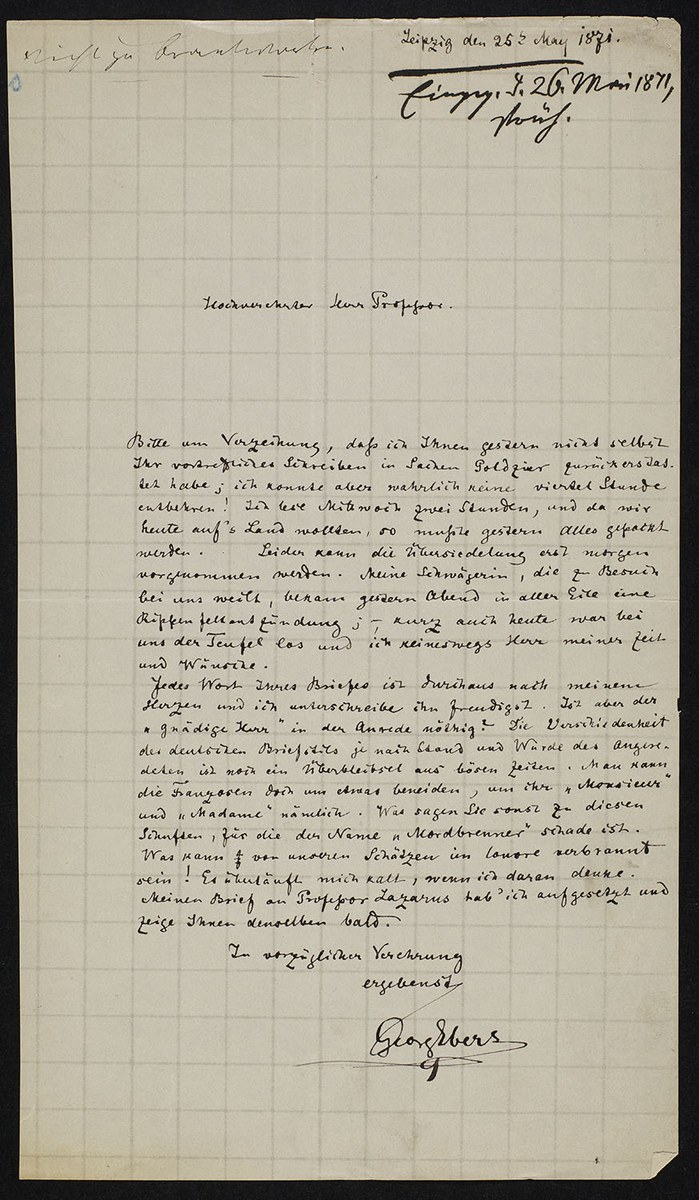 Nicht zu beantworten.
Leipzig den 25t May 1871.
Eingeg. d. 26. Mai 1871,
früh.
Hochverehrter Herr Professor.
Bitte um Verzeihung, daß ich Ihnen gestern nicht selbst
Ihr vortreffliches Schreiben in Sachen Goldzier zurückerstat-
tet habe; ich konnte aber wahrlich keine viertel Stunde
entbehren! Ich lese Mittwoch zwei Stunden, und da wir
heute auf's Land wollten, so mußte gestern Alles gepackt
werden. Leider kann die Übersiedelung erst morgen
vorgenommen werden. Meine Schwägerin, die z Besuch
bei uns weilt, bekam gestern Abend in aller Eile eine
Rippenfellentzündung; – kurz auch heute war bei
uns der Teufel los und ich keineswegs Herr meiner Zeit
und Wünsche.
Jedes Wort Ihres Briefes ist durchaus nach meinem
Herzen und ich unterschreibe ihn freudigst. Ist aber der
„gnädige Herr" in der Anrede nöthig? Die Verschiedenheit
des deutschen Briefstils je nach Stand und Würde des Angere-
deten ist noch ein Überbleibsel aus bösen Zeiten. Man kann
die Franzosen doch um etwas beneiden, um ihr „Monsieur"
und „Madame" nämlich. Was sagen Sie sonst zu diesen
Schuften, für die der Name „Mordbrenner" schade ist.
Was kann von unseren Schätzen im louvre verbrannt
sein! Es überläuft mich kalt, wenn ich daran denke.
Meinen Brief an Professor Lazarus hab' ich aufgesetzt und
zeige Ihnen denselben bald.
In vorzüglicher Verehrung
ergebenst
Georg Ebers